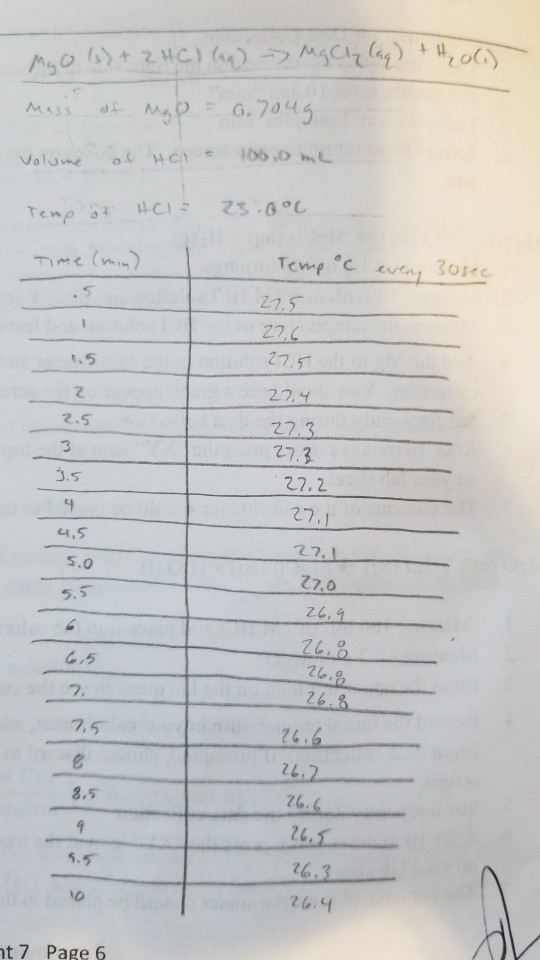 MgO (s) + 2 HCl (aq) -> MgCl2 (aq) + H2O(l)
Mass of MgO = 0.704g
Volume of HCl = 100.0 mL
Temp of HCl = 23.0°C
Time (min) Temp °C every 30sec
.5 27.5
1 27.6
1.5 27.5
2 27.4
2.5 27.3
3 27.3
3.5 27.2
4 27.1
4.5 27.1
5.0 27.0
5.5 26.9
6 26.8
6.5 26.8
7. 26.8
7.5 26.6
8 26.7
8.5 26.6
9 26.5
9.5 26.3
10 26.4
nt 7 Page 6